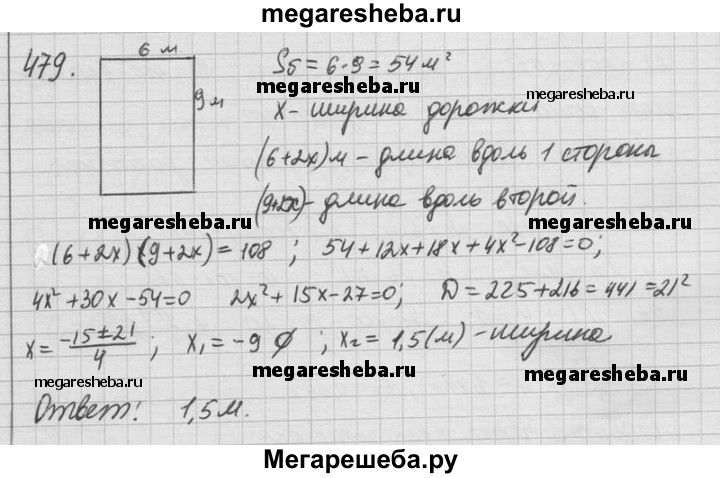 megaresheba.ru
479.
6 м
9 м
Sб = 6·9 = 54 м²
megaresheba.ru
megaresheba.ru
x - ширина дорожки
(6+2x)м - длина вдоль 1 стороны
(9+2x) - длина вдоль второй.
megaresheba.ru
megaresheba.ru
(6+2x)(9+2x) = 108 ; 54+12x+18x+4x²-108=0;
4x²+30x-54=0 2x²+15x-27=0; D = 225+216 = 441 = 21²
x = (-15±21)/4 ; x₁ = -9 ∅ ; x₂ = 1,5(м) - ширина
megaresheba.ru
megaresheba.ru
megaresheba.ru
Ответ: 1,5 м.
Мегарешеба.ру